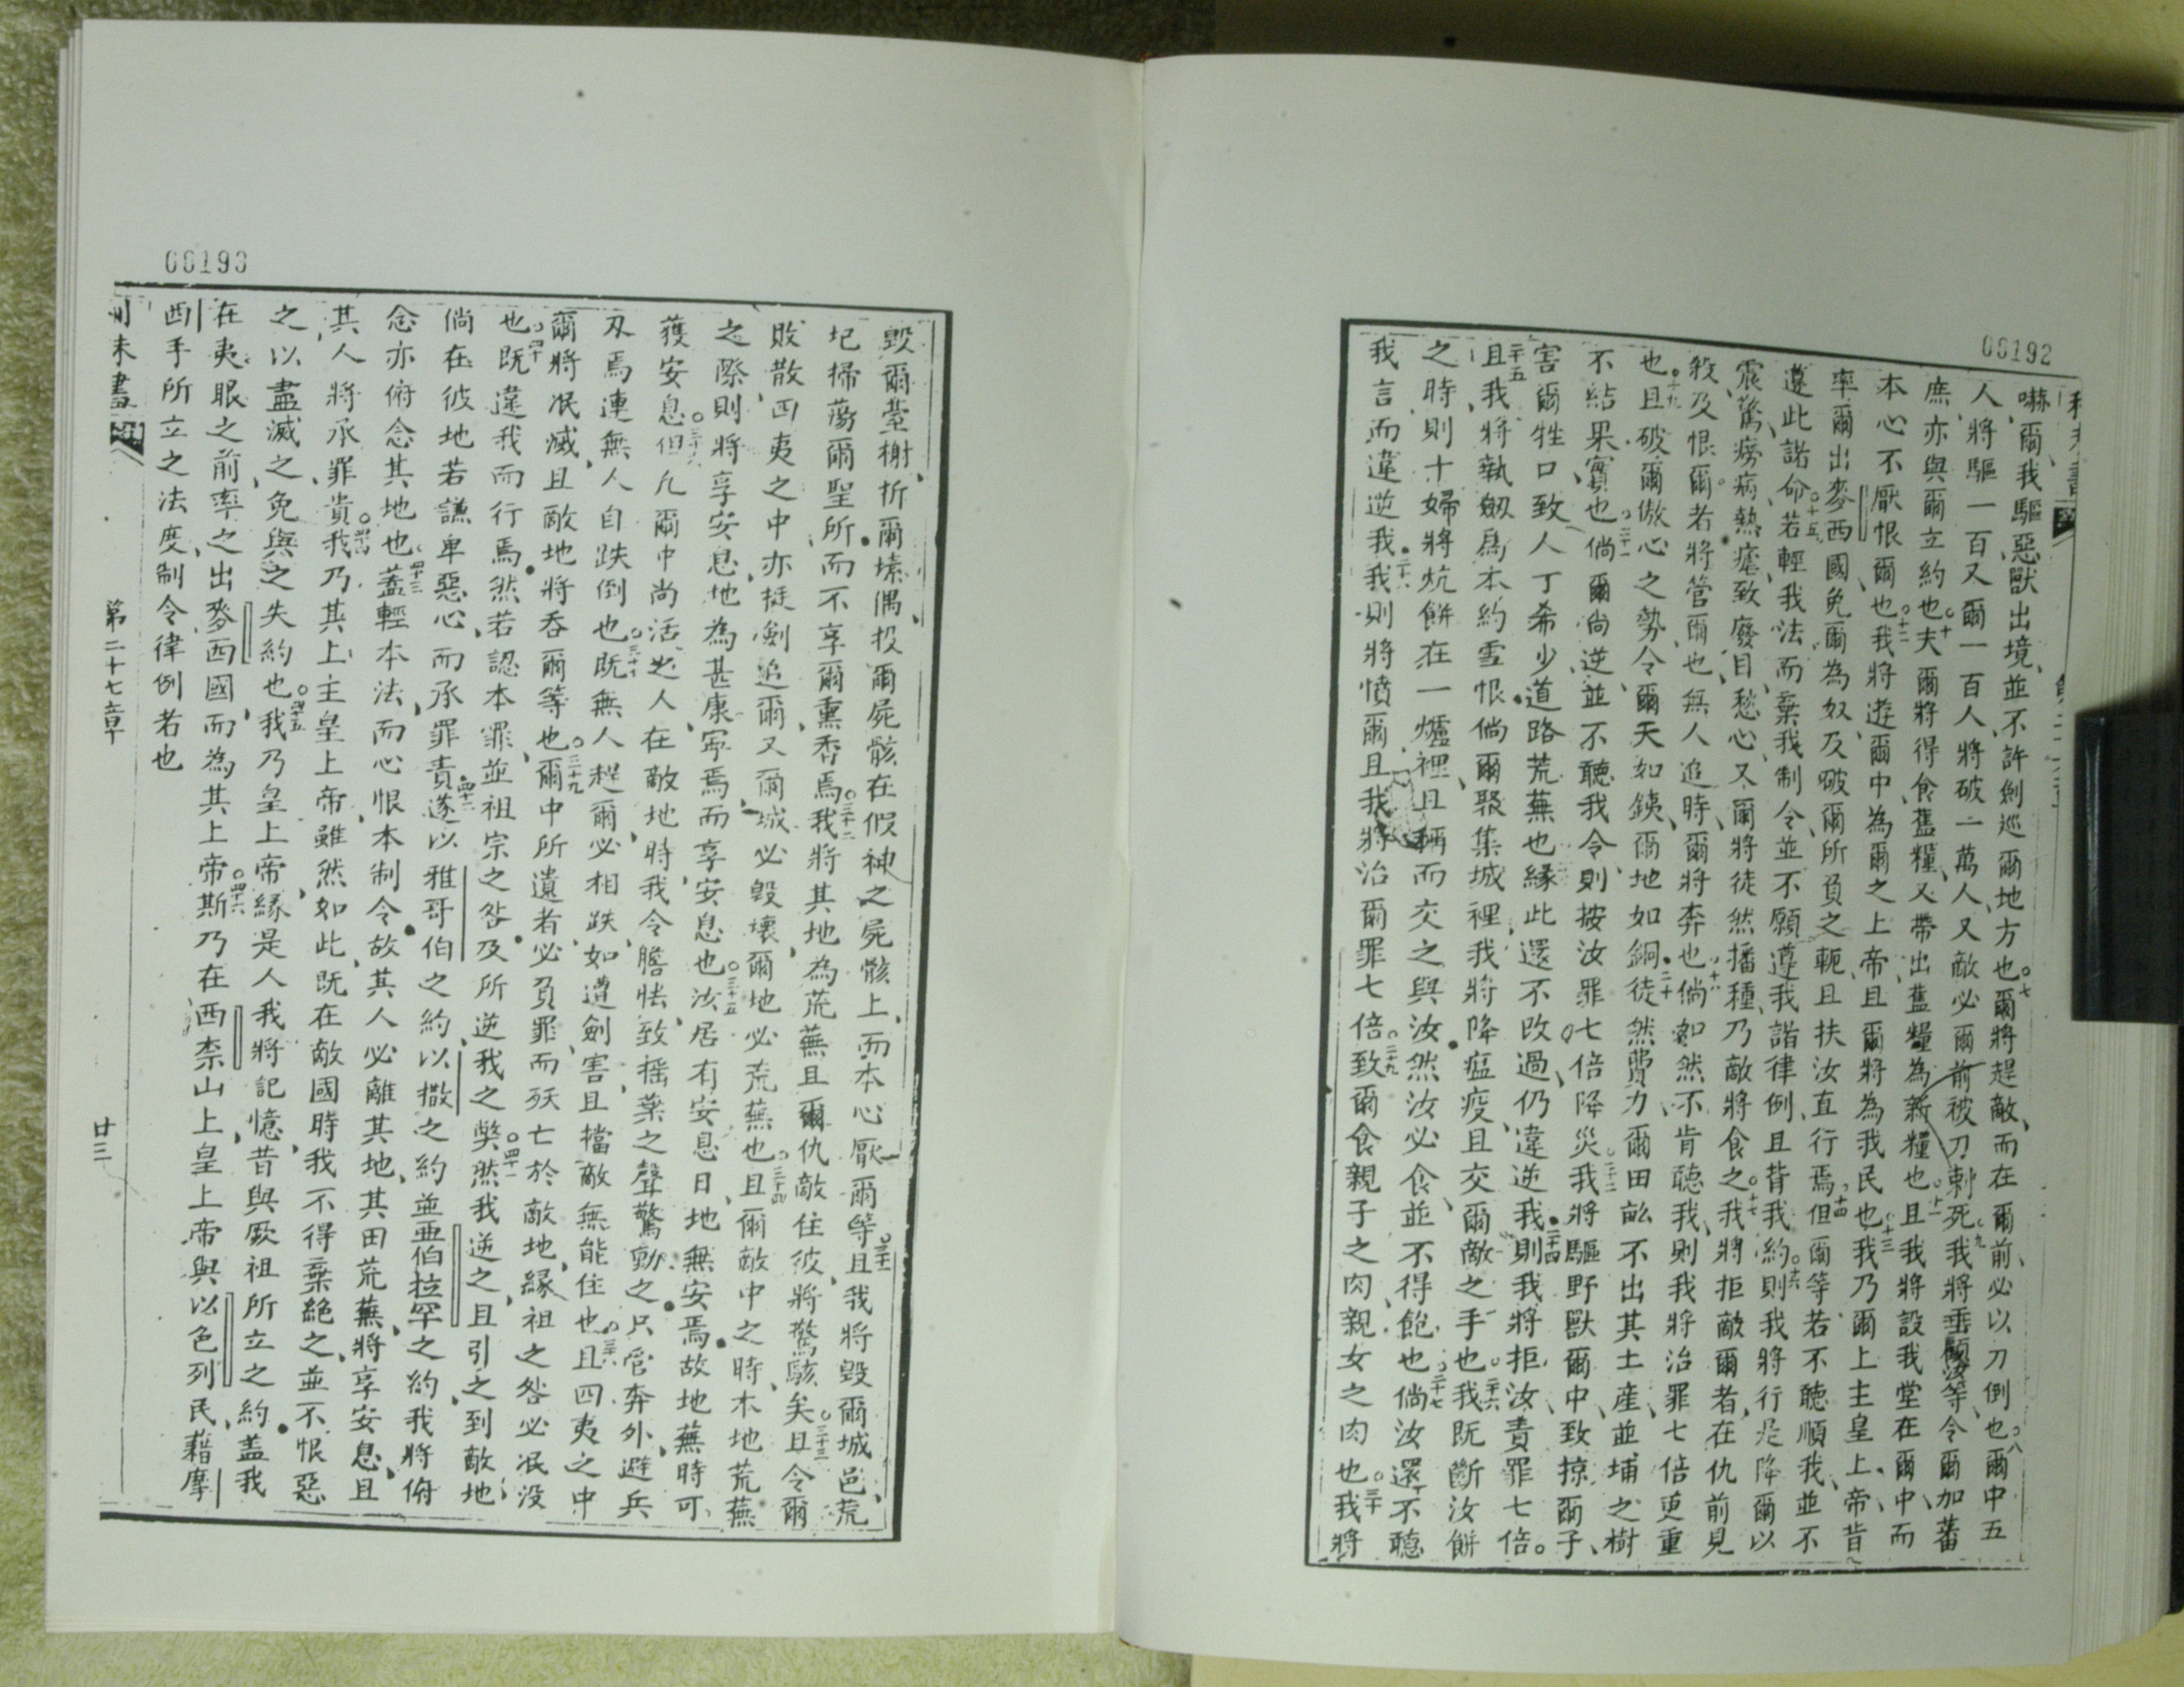 06192
嚇爾我驅惡獸出境並不許劍巡爾地方也。七爾將趕敵而在爾前必以刀倒也。八爾中五
人將驅一百又爾一百人將破一萬人又敵必爾前被刀刺死。九我將垂顧汝等令爾加蕃
庶亦與爾立約也。十夫爾將得食舊糧又帶出舊糧為新糧也。十一且我將設我堂在爾中而
本心不厭恨爾也。十二我將遊爾中為爾之上帝且爾將為我民也。十三我乃爾上主皇上帝昔
率爾出麥西國免爾為奴及破爾所負之軛且扶汝直行焉。十四但爾等若不聽順我並不
遵此諸命。十五若輕我法而棄我制令並不願遵我諸律例且背我約。十六則我將行是降爾以
震驚癆病熱瘧致廢目愁心又爾將徒然播種乃敵將食之。十七我將拒敵爾者在仇前見
殺及恨爾者將管爾也無人追時爾將奔也。十八倘如然不肯聽我則我將治罪七倍更重
也。十九且破爾傲心之勢令爾天如銕爾地如銅。二十徒然費力爾田畝不出其土產並埔之樹
不結果實也。二十一倘爾尚逆並不聽我令則按汝罪七倍降災。二十二我將驅野獸爾中致掠爾子
害爾牲口致人丁希少道路荒蕪也緣此還不改過仍違逆我。二十四則我將拒汝責罪七倍。
二十五且我將執劍為本約雪恨倘爾聚集城裡我將降瘟疫且交爾敵之手也。二十六我既斷汝餅
之時則十婦將炕餅在一爐裡且稱而交之與汝然汝必食並不得飽也。二十七倘汝還不聽
我言而違逆我。二十八我則將憤爾且我將治爾罪七倍。二十九致爾食親子之肉親女之肉也。三十我將
06193
毀爾臺榭折爾塐偶投爾屍骸在假神之屍骸上而本心厭爾等。三十一且我將毀爾城邑荒
圮掃蕩爾聖所而不享爾熏香焉。三十二我將其地為荒蕪且爾仇敵住彼將驚駭矣。三十三且令爾
敗散四夷之中亦挺劍追爾又爾城必毀壞爾地必荒蕪也。三十四且爾敵中之時本地荒蕪
之際則將享安息地為甚康寧焉而享安息也。三十五汝居有安息日地無安焉故地蕪時可
獲安息。三十六但凡爾中尚活之人在敵地時我令膽怯致搖葉之聲驚動之只管奔外避兵
刃焉連無人自跌倒也。三十七既無人趕爾必相跌如遭劍害且擋敵無能住也。三十八且四夷之中
爾將泯滅且敵地將吞爾等也。三十九爾中所遺者必負罪而殀亡於敵地緣祖之咎必泯没
也。四十既違我而行焉然若認本罪並祖宗之咎及所逆我之獘。四十一然我逆之且引之到敵地
倘在彼地若謙卑惡心而承罪責。四十二遂以雅哥伯之約以撒之約並亞伯拉罕之約我將俯
念亦俯念其地也。四十三蓋輕本法而心恨本制令故其人必離其地其田荒蕪將享安息且
其人將承罪責。四十四我乃其上主皇上帝雖然如此既在敵國時我不得棄絕之並不恨惡
之以盡滅之免與之失約也。四十五我乃皇上帝緣是人我將記憶昔與厥祖所立之約盖我
在夷眼之前率之出麥西國而為其上帝。四十六斯乃在西柰山上皇上帝與以色列民藉摩
西手所立之法度制令律例若也
利未書
第二十七章
廿三